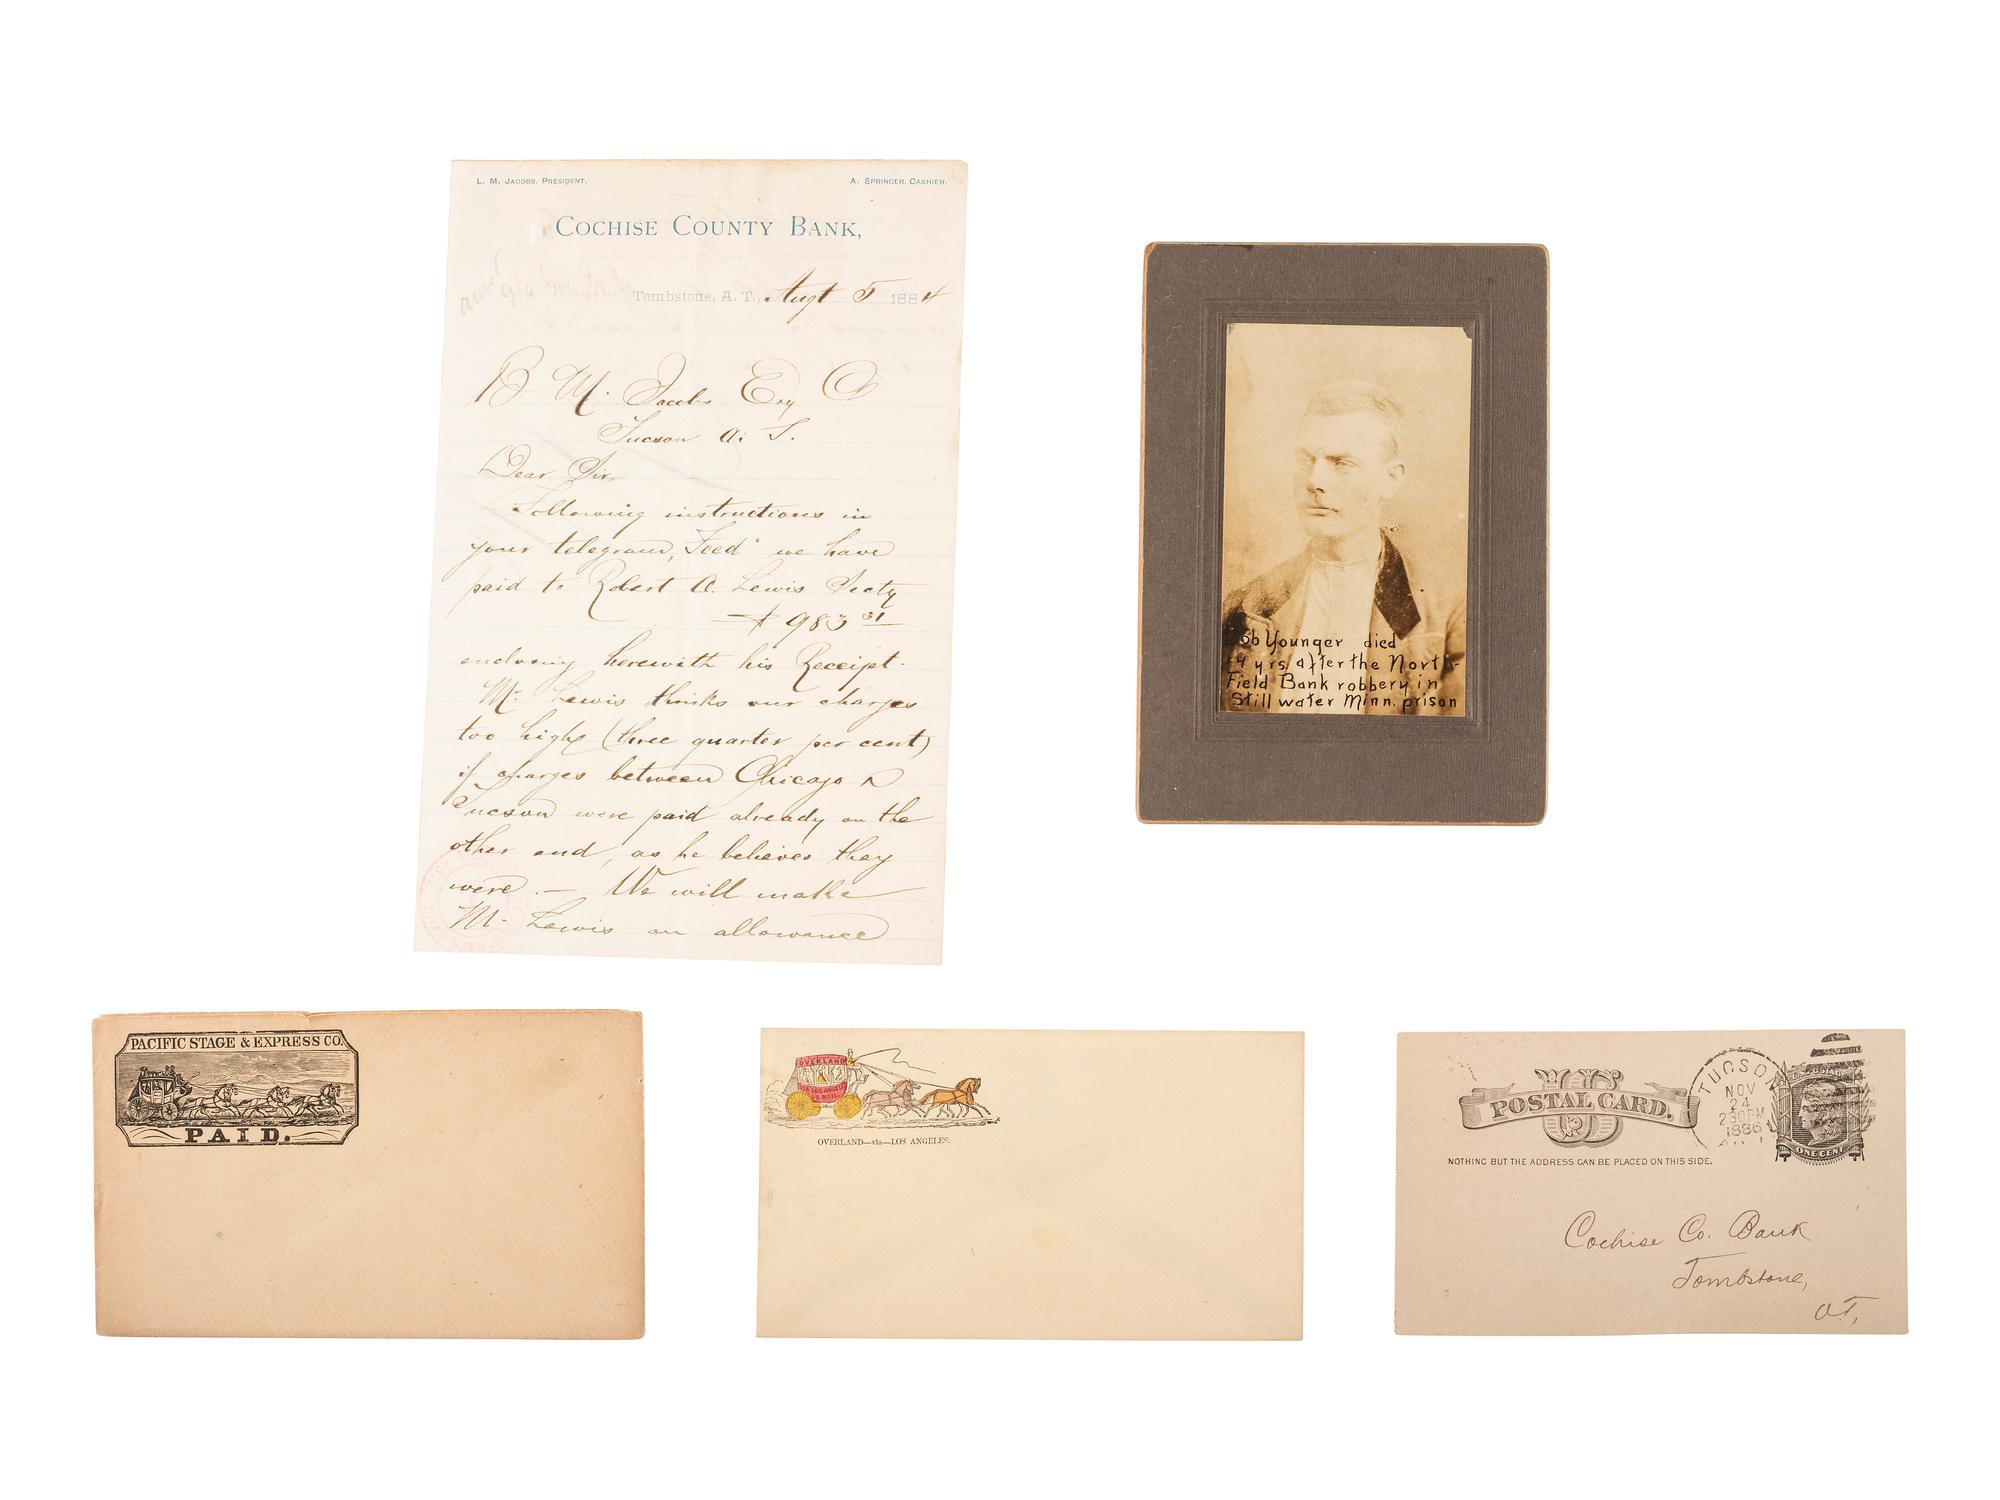 L. M. JACOBS, PRESIDENT.
A. SPRINGER, CASHIER.
COCHISE COUNTY BANK,
Tombstone, A. T., Augt 5 1884
B. M. Jacobs Esq
Tucson A. T.
Dear Sir,
Following instructions in
your telegram, "Feed" we have
paid to Robert A. Lewis Secty
$983 31
enclosing herewith his Receipt.
Mr. Lewis thinks our charges
too high (three quarter per cent)
if charges between Chicago &
Tucson were paid already on the
other end, as he believes they
were. — We will make
Mr. Lewis an allowance
Bob Younger died
14 yrs, after the North-
Field Bank robbery in
Still water Minn. prison
PACIFIC STAGE & EXPRESS CO.
PAID.
OVERLAND
VIA LOS ANGELES
U.S MAIL
OVERLAND—via—LOS ANGELES.
US
POSTAL CARD.
NOTHING BUT THE ADDRESS CAN BE PLACED ON THIS SIDE.
TUCSON
NOV
24
230PM
1886
ONE CENT
Cochise Co. Bank
Tombstone,
A.T,